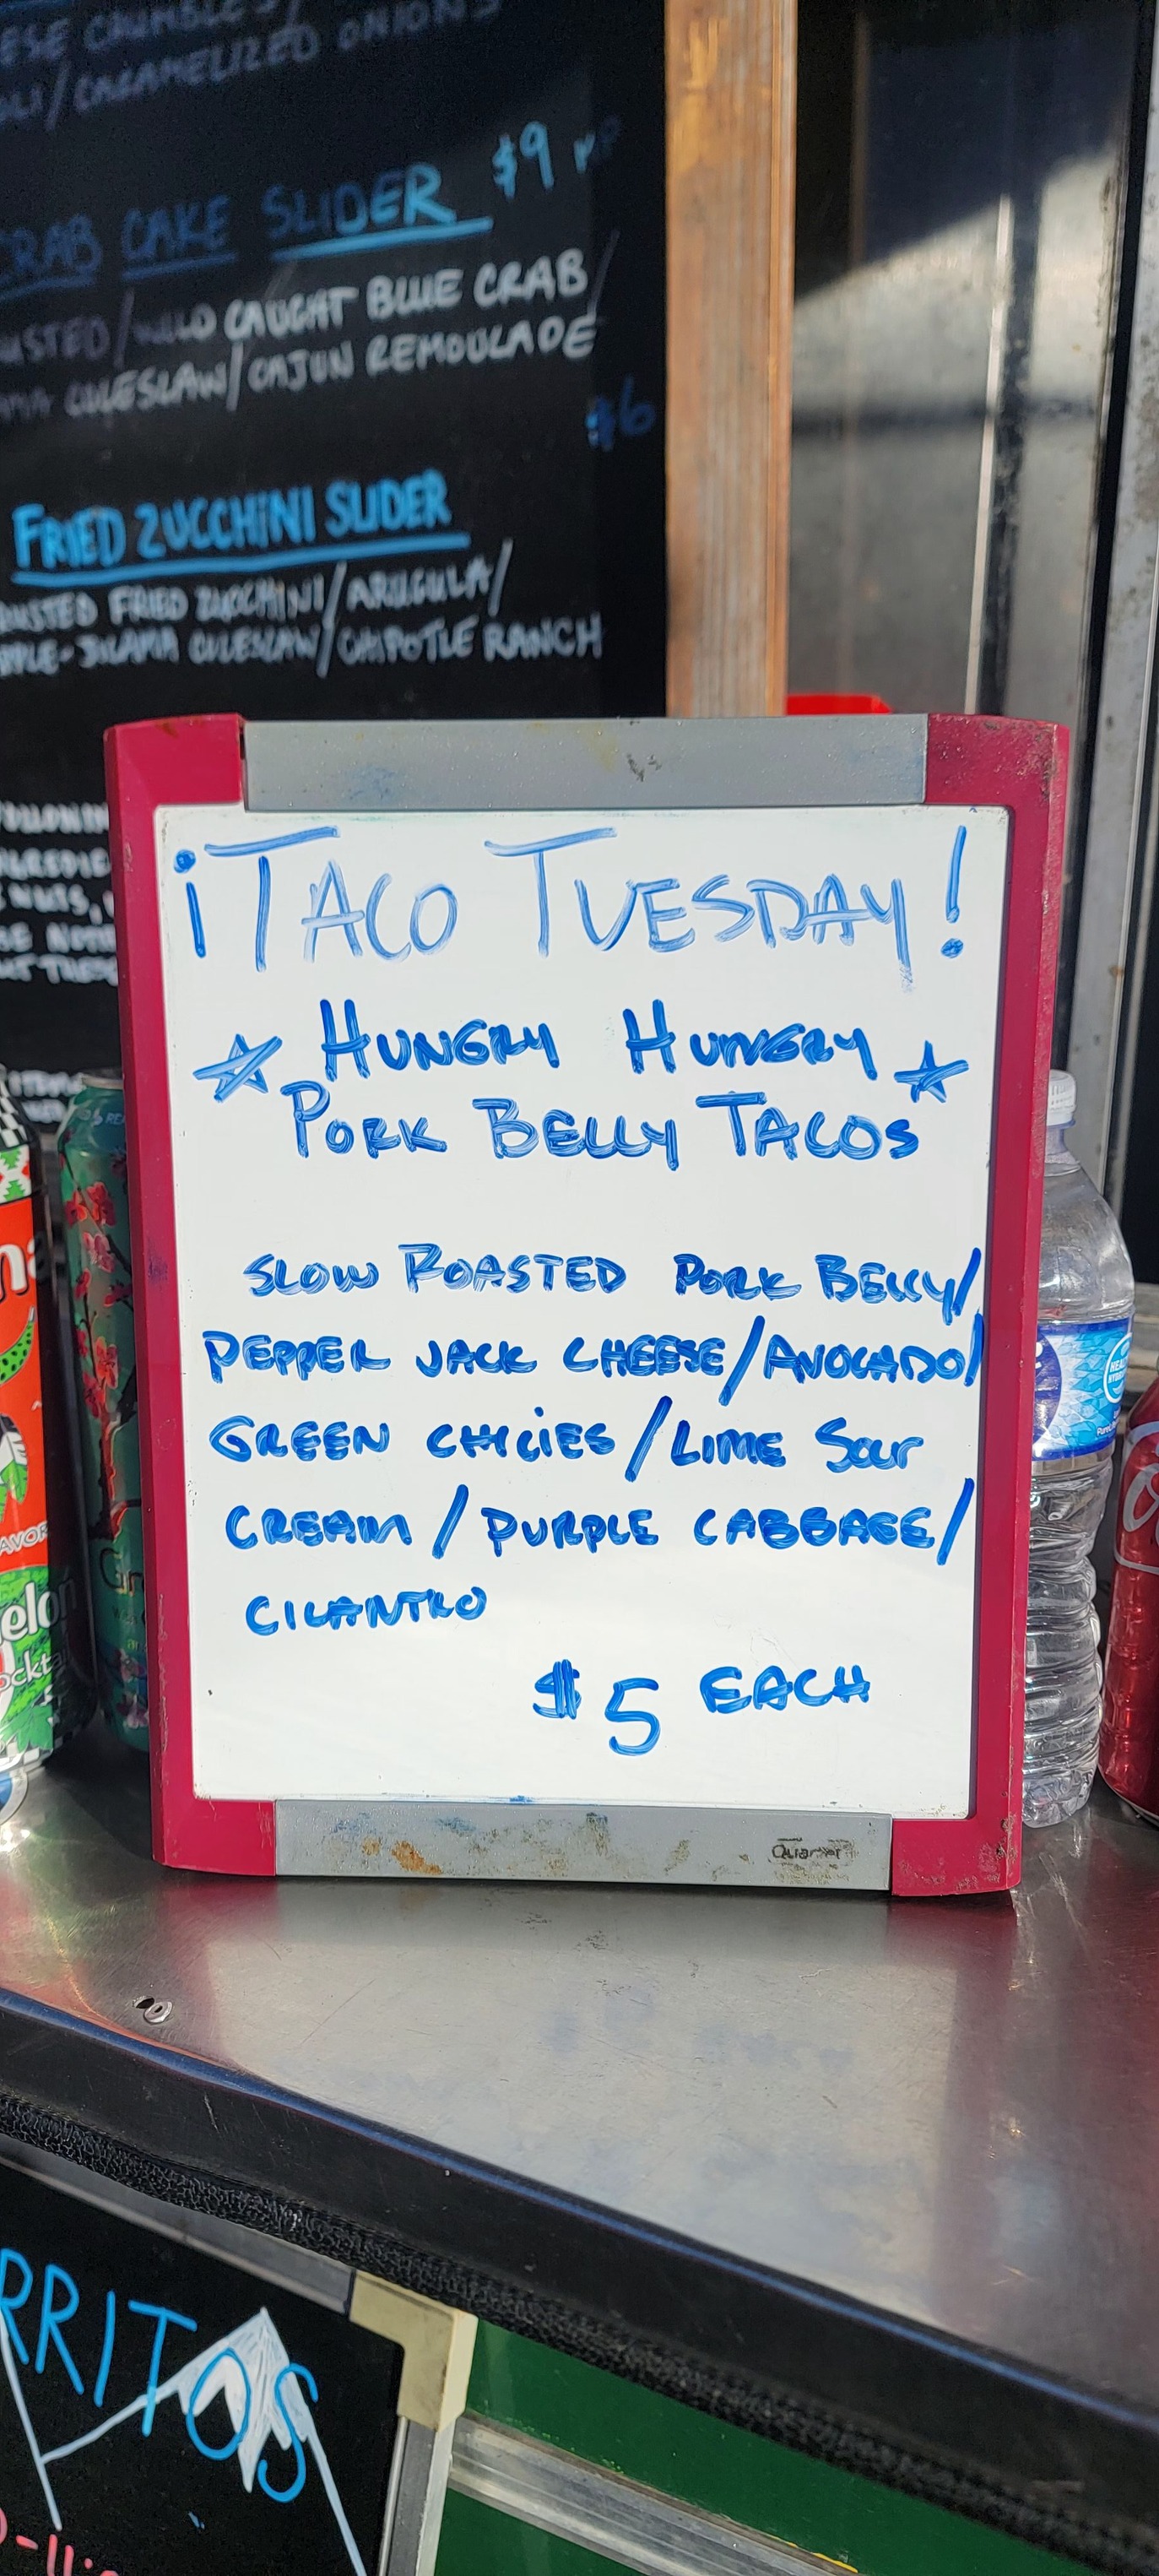 CARAMELIZED ONIONS
$9
CRAB CAKE SLIDER
CAUGHT BLUE CRAB/
COLESLAW/CAJUN REMOULADE
$6
FRIED ZUCCHINI SLIDER
FRIED ZUCCHINI/ARUGULA/
COLESLAW/CHIPOTLE RANCH
NUTS,
¡TACO TUESDAY!
HUNGRY HUNGRY
PORK BELLY TACOS
SLOW ROASTED PORK BELLY/
PEPPER JACK CHEESE/AVOCADO/
GREEN CHILIES/LIME SOUR
CREAM/PURPLE CABBAGE/
CILANTRO
$5 EACH
Quartet
RRITOS